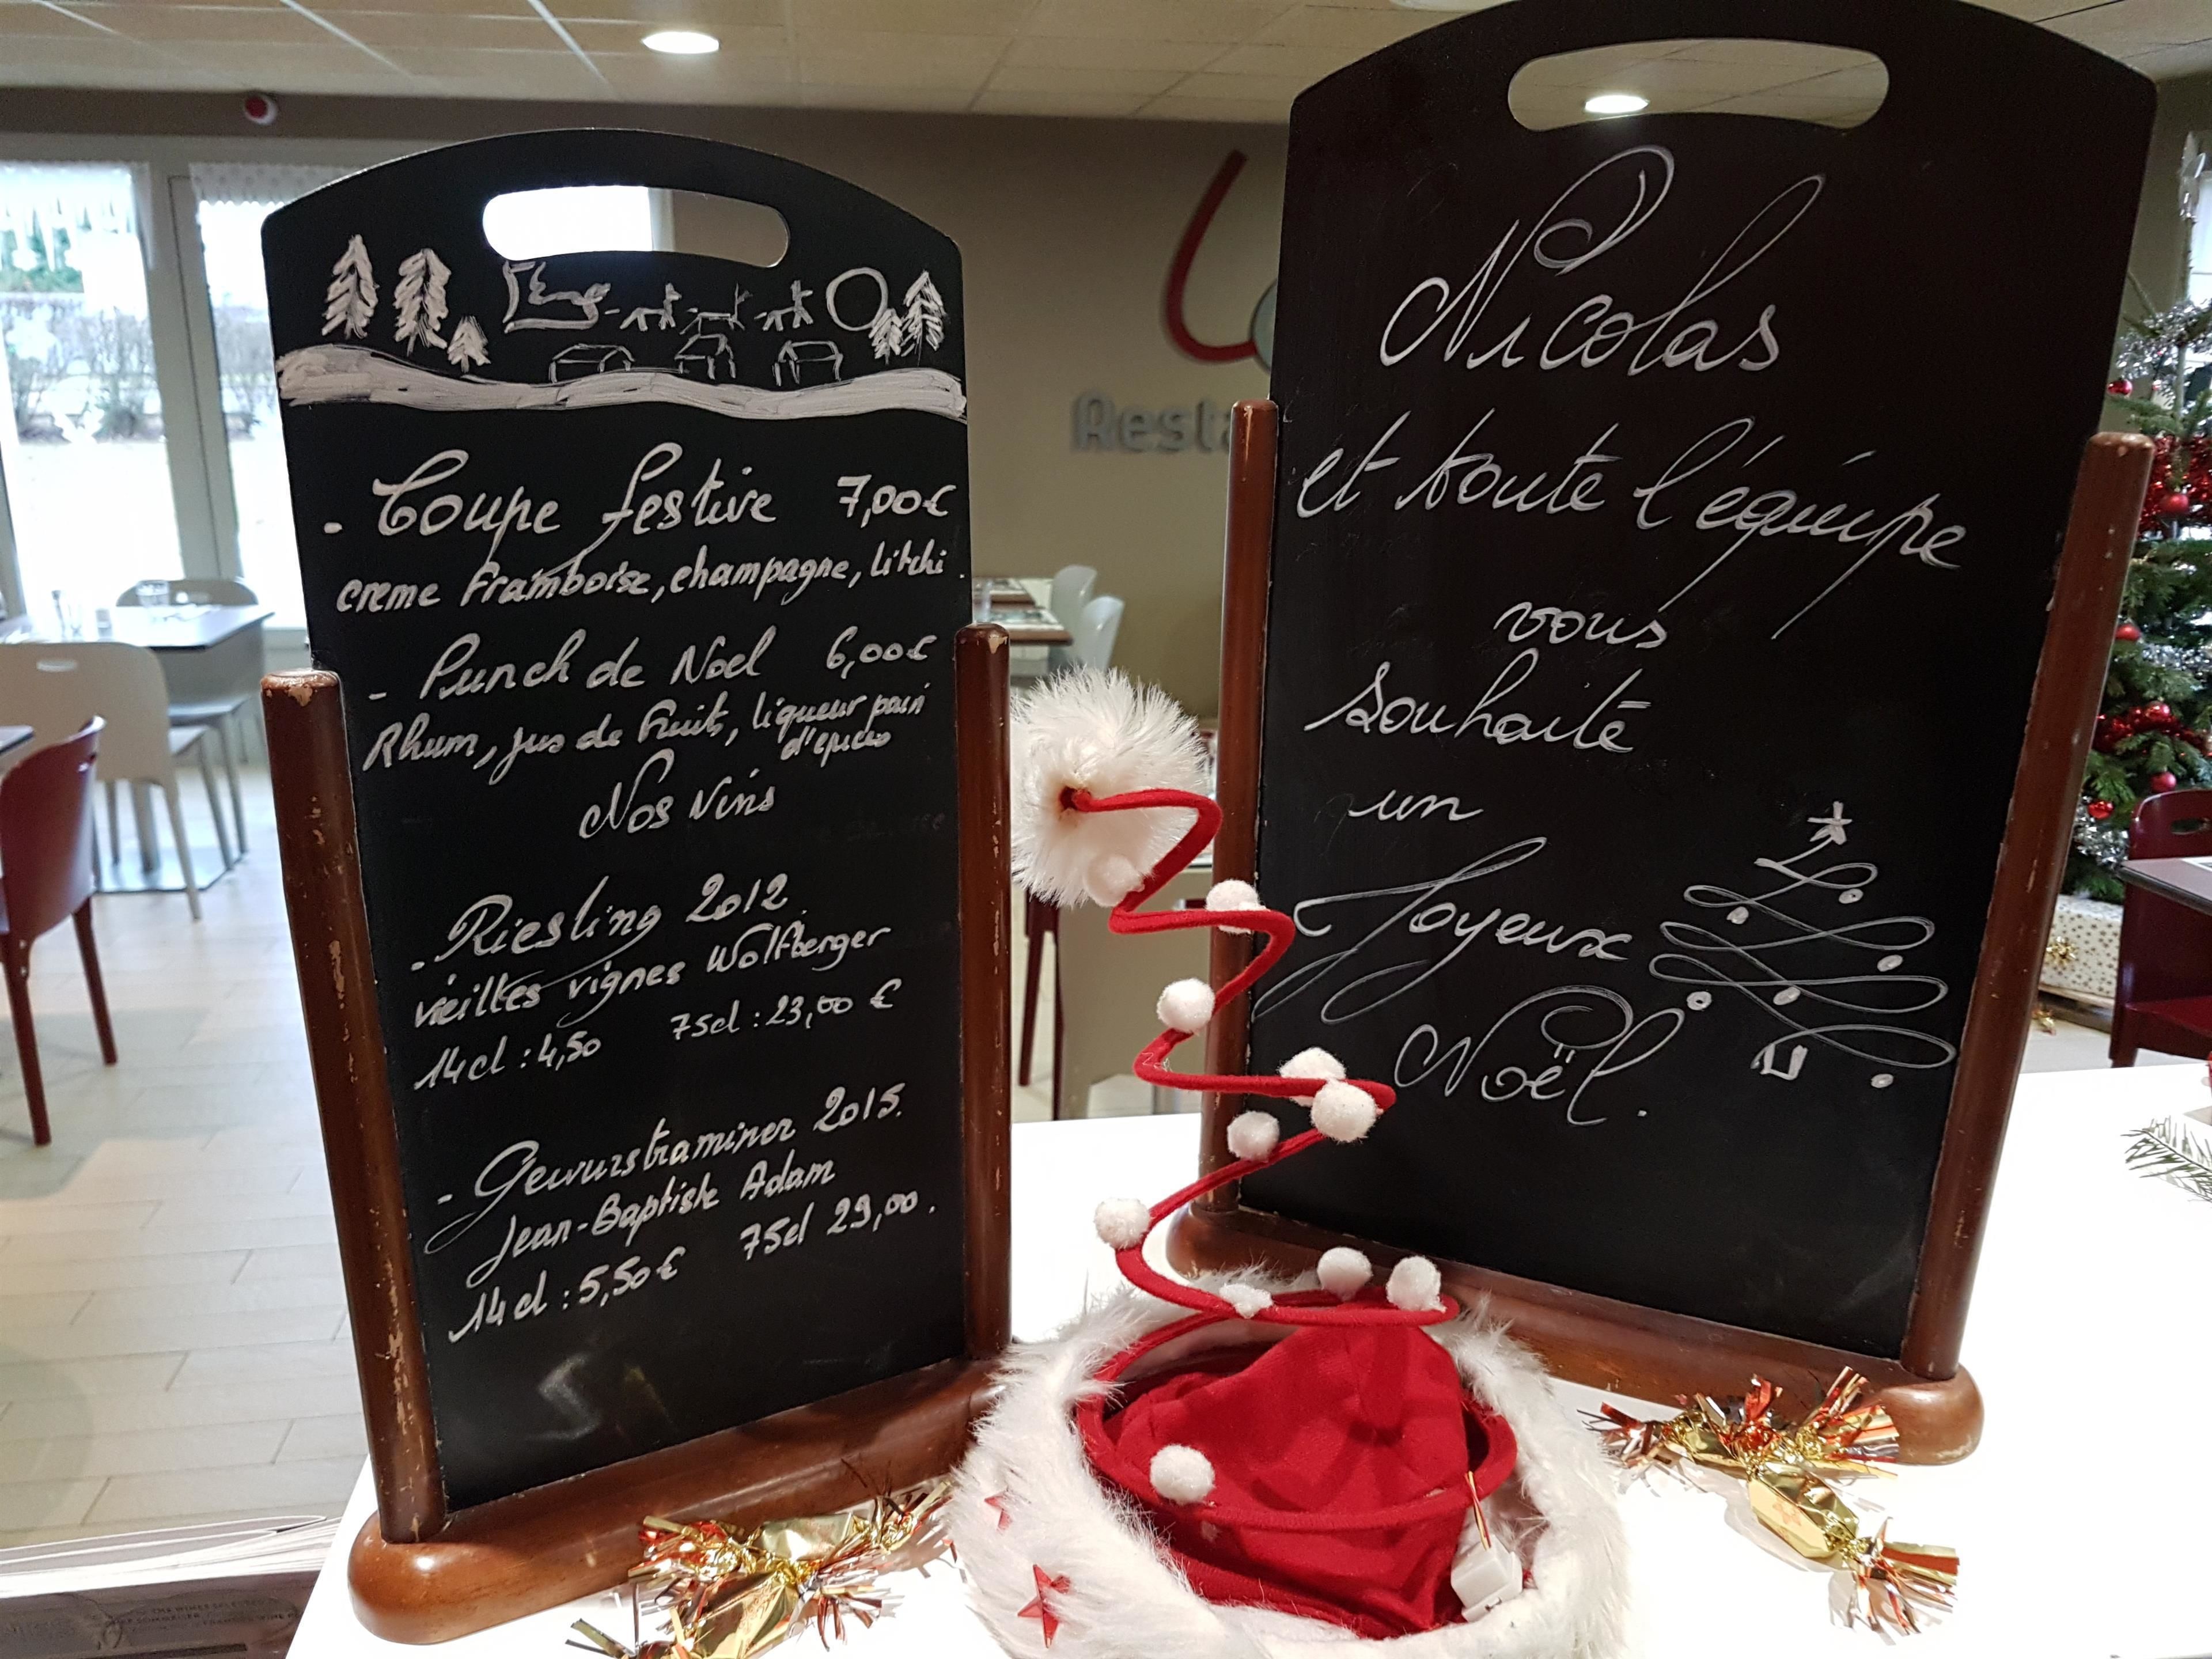 - Coupe festive 7,00€
creme Framboise, champagne, litchi.
- Punch de Noel 6,00€
Rhum, jus de Fruits, liqueur pain
d'epices
Nos vins
- Riesling 2012.
vieilles vignes Wolfberger
14cl : 4,50 75cl : 23,00 €
- Gewurstraminer 2015.
Jean-Baptiste Adam
14cl : 5,50€ 75cl 29,00.
Resta
Nicolas
et toute l'équipe
vous
souhaite
un
Joyeux
Noël.